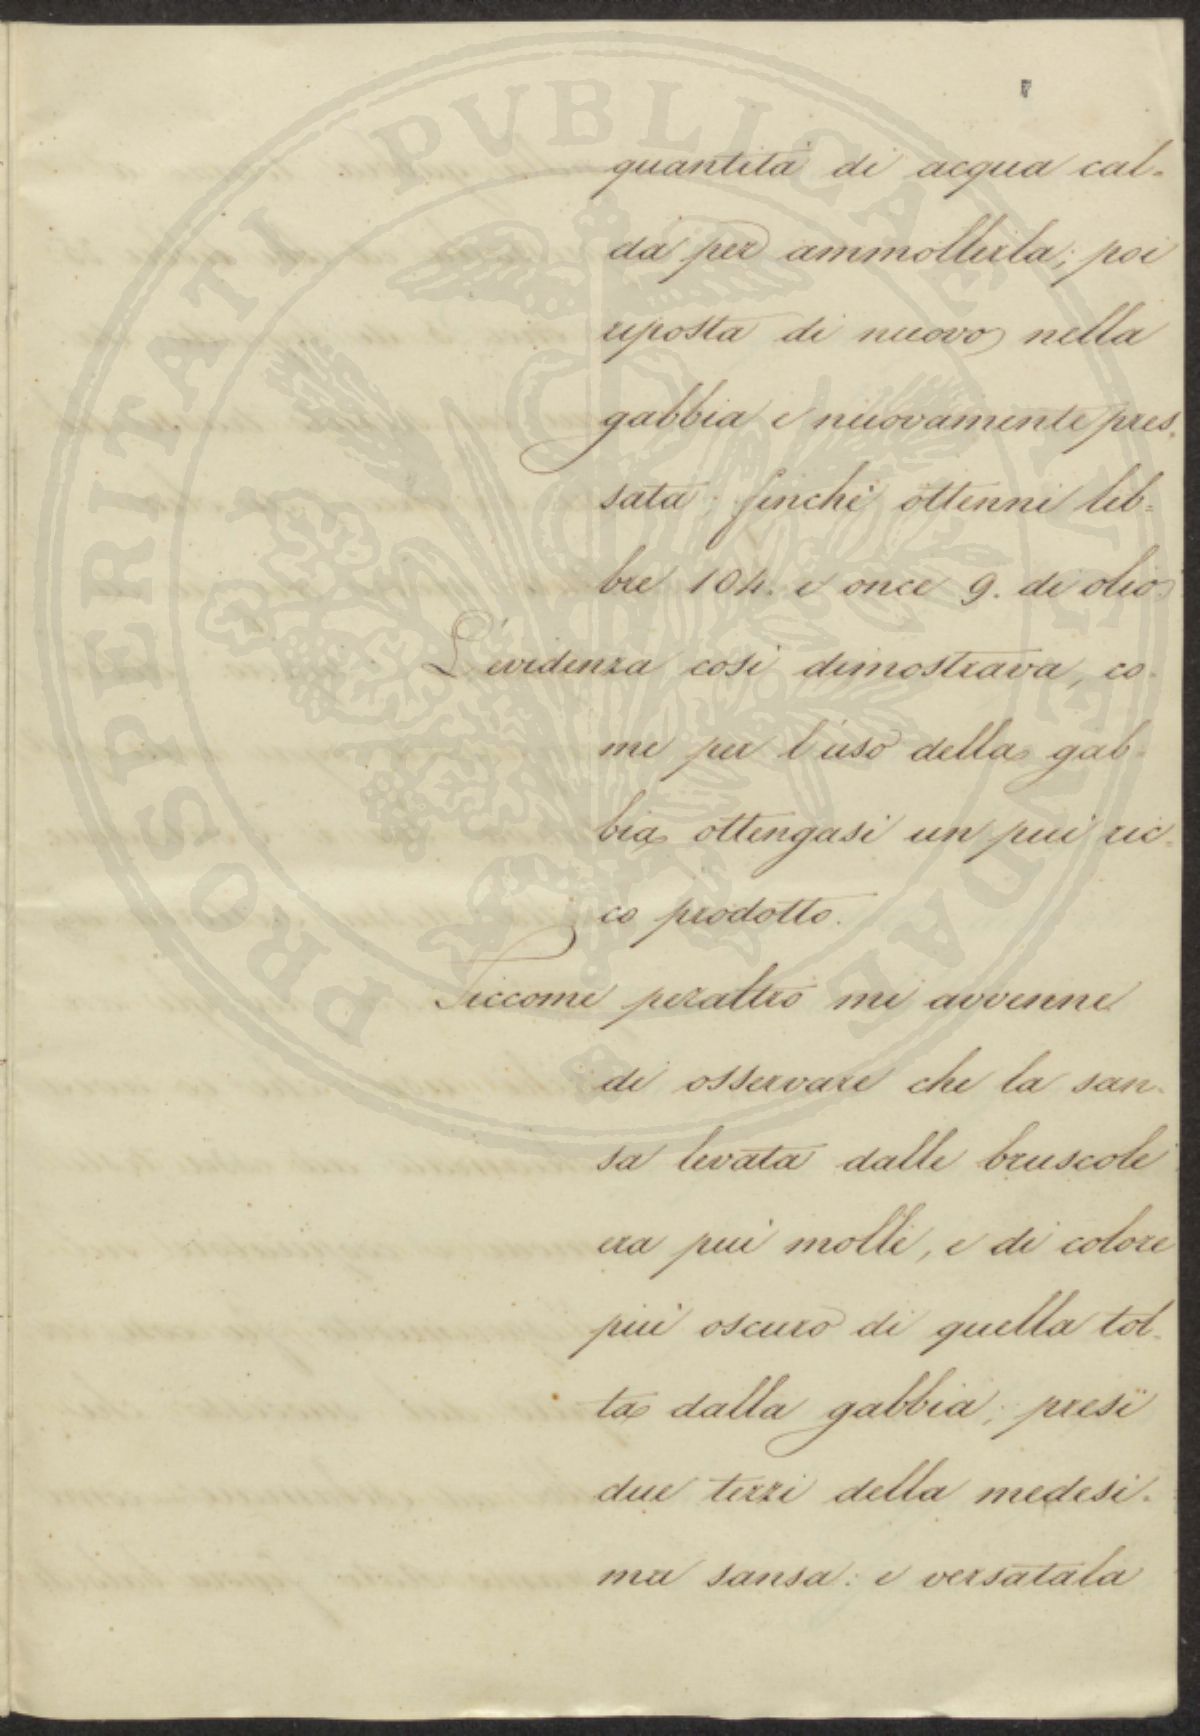 quantità di acqua cal-
da per ammollirla; poi
riposta di nuovo nella
gabbia e nuovamente pres-
sata: finchè ottenni lib-
bre 104. e once 9. di olio
L'evidenza così dimostrava, co-
me per l'uso della gab-
bia ottengasi un più ric-
co prodotto.
Siccome peraltro mi avvenne
di osservare che la san-
sa levata dalle bruscole
era più molle, e di colore
più oscuro di quella tol-
ta dalla gabbia; presi
due terzi della medesi-
ma sansa: e versatala
PROSPERITATI PVBLICAE AVGENDAE